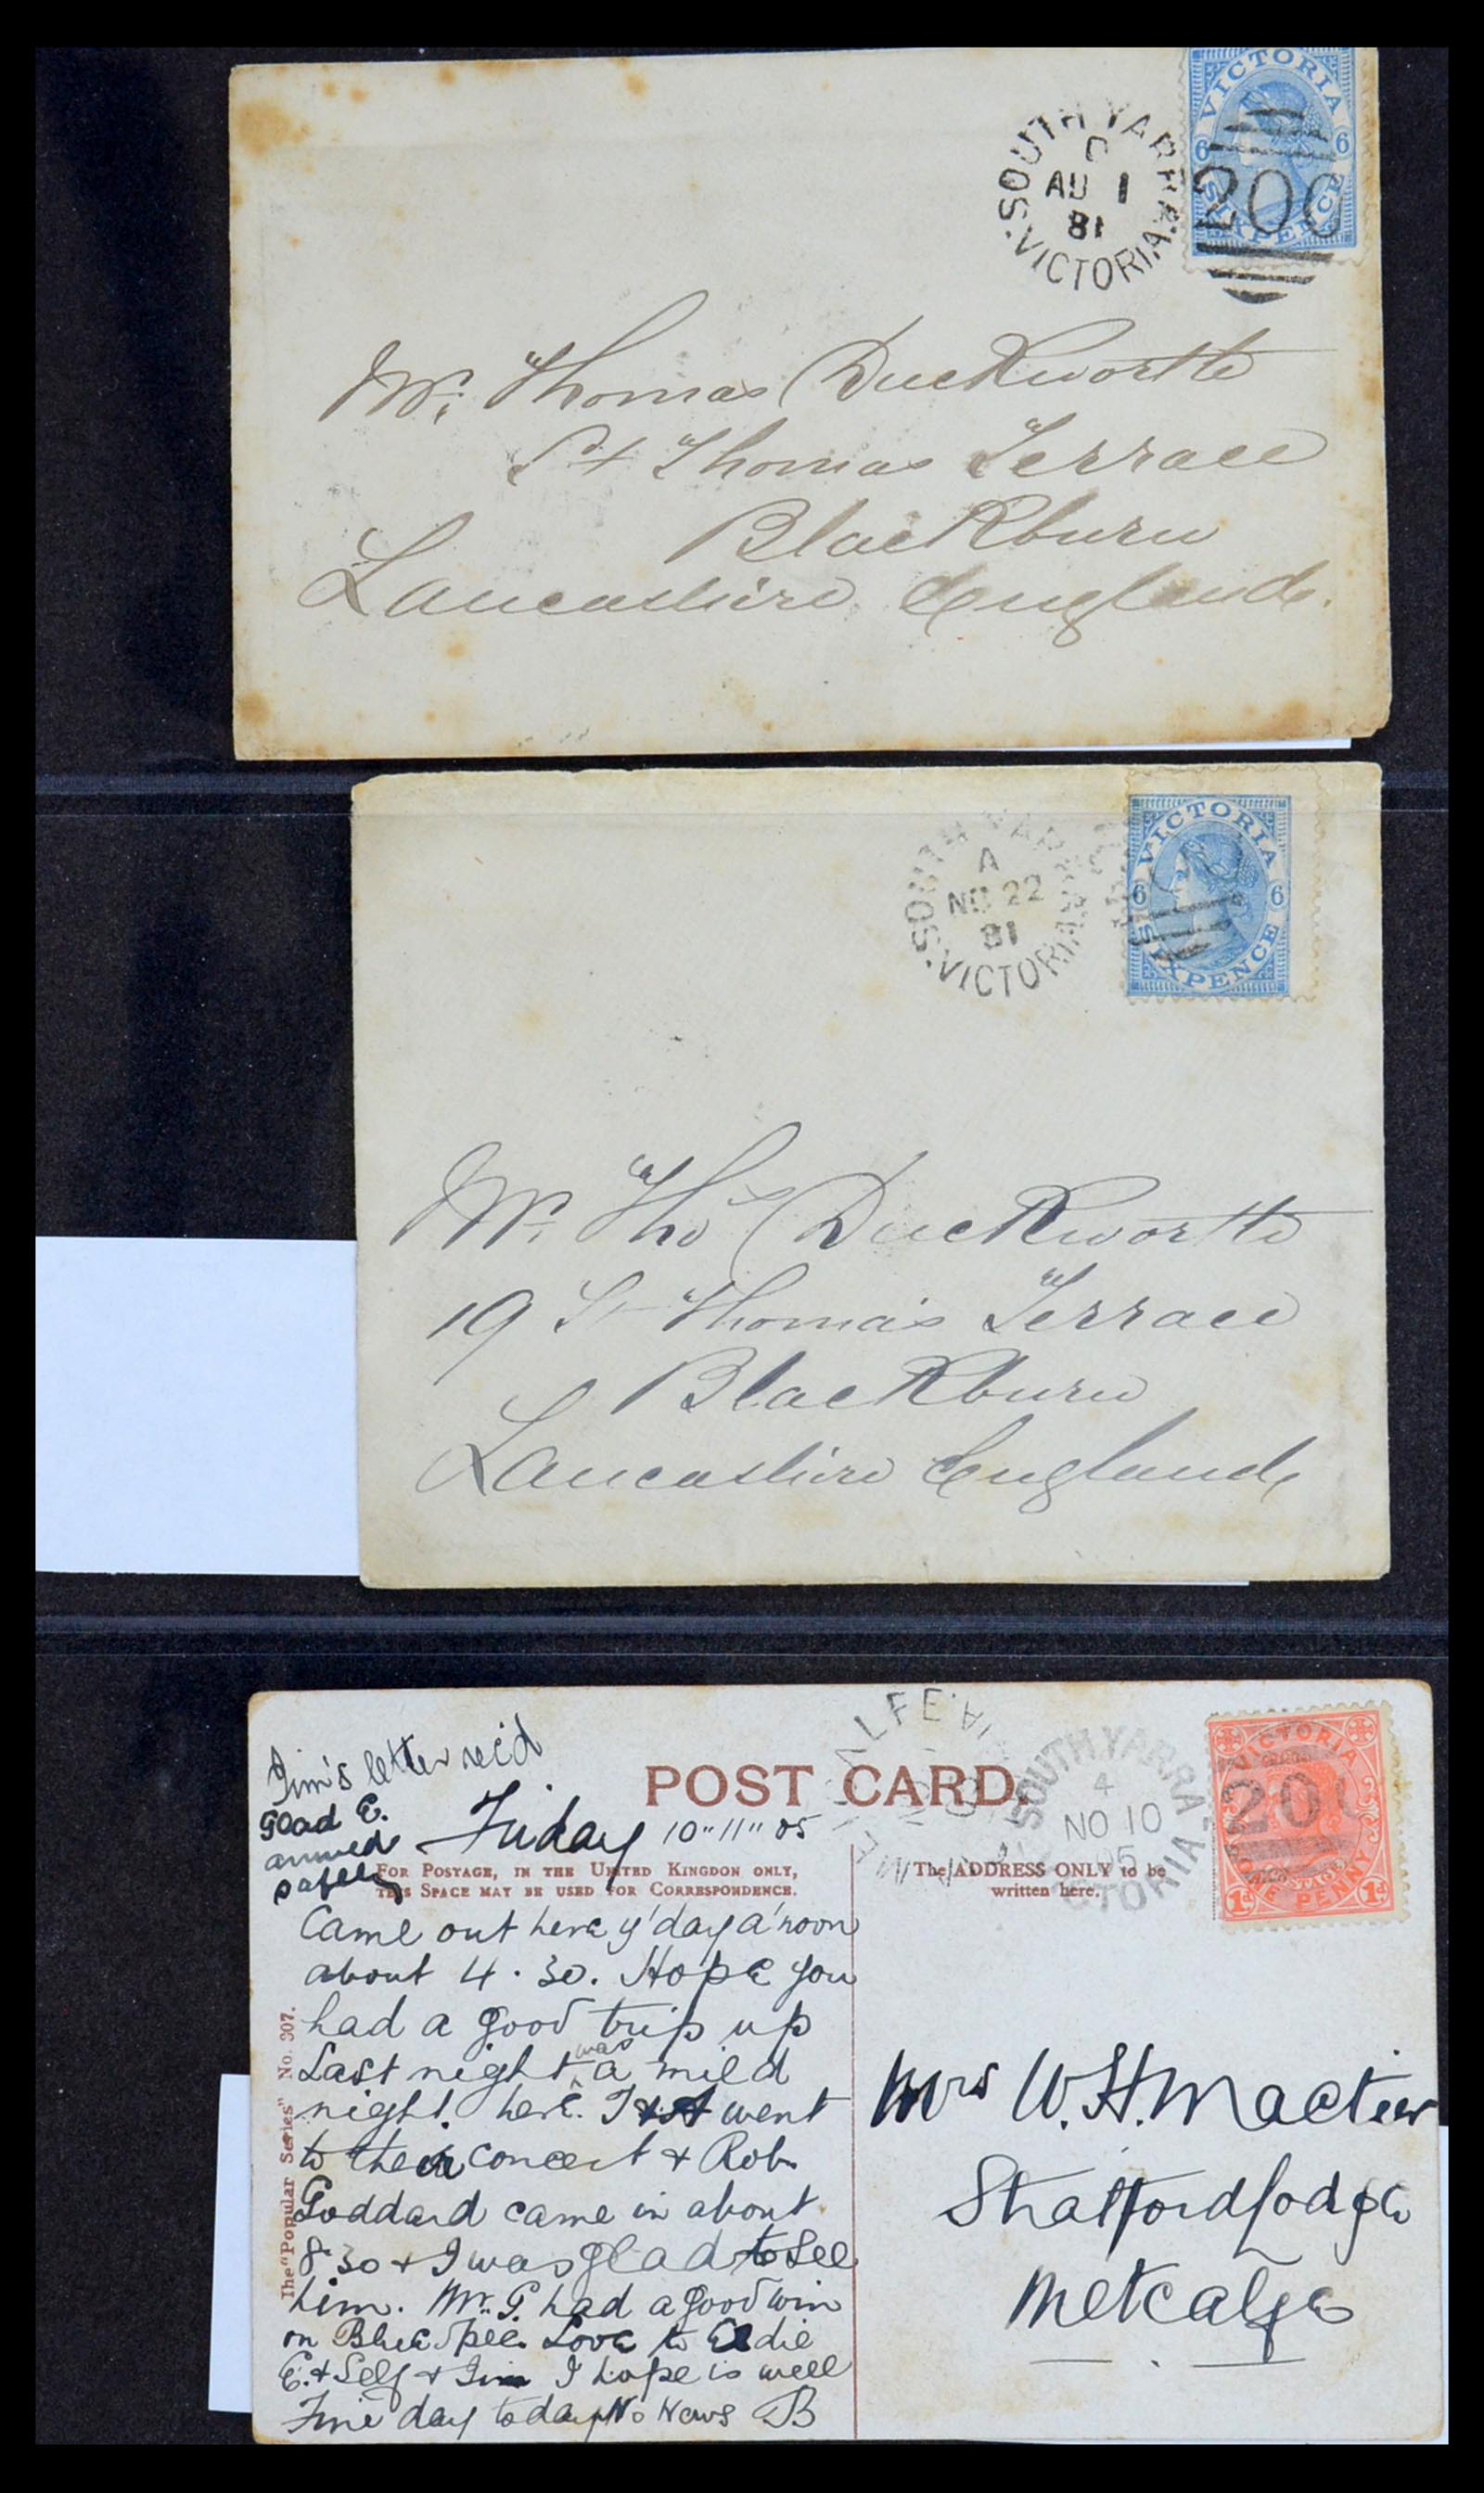 VICTORIA
6 6
SIXPENCE
200
SOUTH YARRA
C
AU 1
81
VICTORIA
Mr. Thomas Duckworth
St Thomas Terrace
Blackburn
Lancashire England.
VICTORIA
6 6
SIXPENCE
SOUTH YARRA
A
NO 22
81
VICTORIA
Mr. Thos Duckworth
19 St Thomas Terrace
Blackburn
Lancashire England
Jim's letter rec'd
Glad E.
arrived
safely
POST CARD.
Friday 10"11"05
FOR POSTAGE, IN THE UNITED KINGDON ONLY,
THIS SPACE MAY BE USED FOR CORRESPONDENCE.
The ADDRESS ONLY to be
written here.
SOUTH YARRA
4
NO 10
05
VICTORIA
VICTORIA
20
POSTAGE
ONE PENNY
1d 1d
Came out here y'day a'noon
about 4.30. Hope you
had a good trip up
Last night was a mild
night here. I & A went
to their concert & Rob.
Goddard came in about
8.30 & I was glad to see
him. Mr. G. had a good win
on Blue Spec. Love to Eddie
E. & Self & Jim I hope is well
Fine day today No News B
The "Popular Series" No. 307.
Mrs W.H. Mactier
Stratford Lodge
Metcalfe